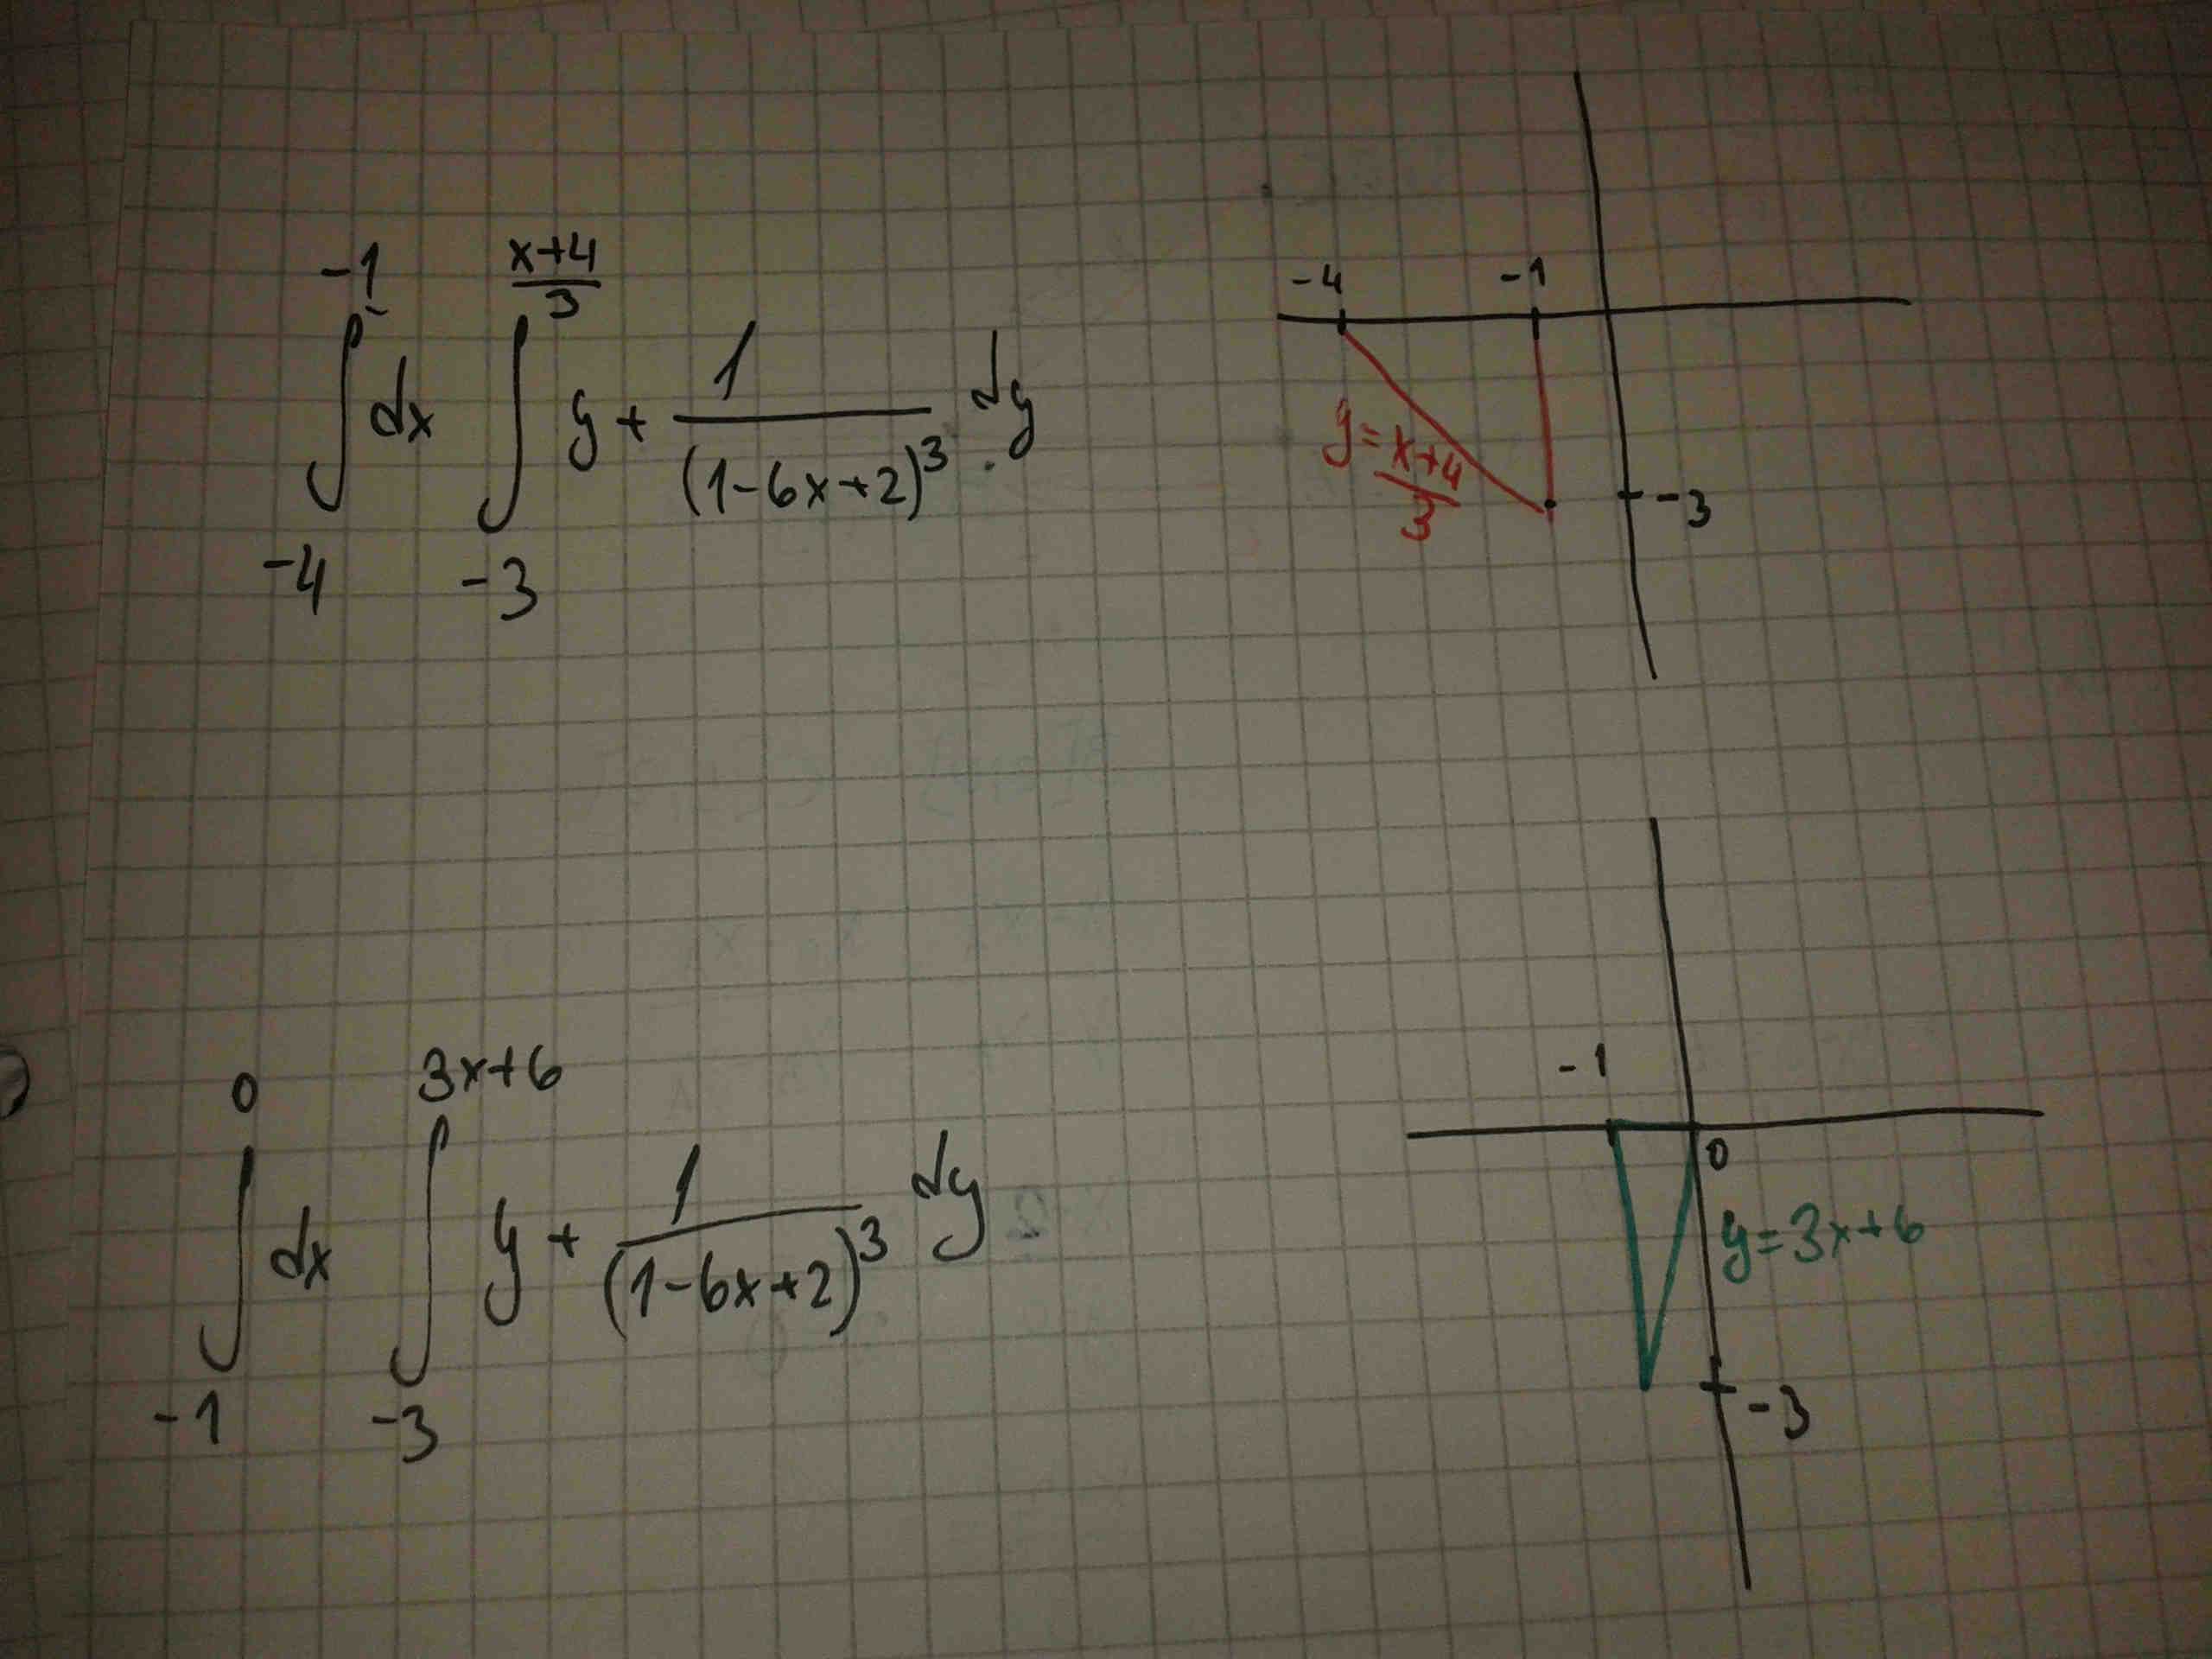 ∫_{-4}^{-1} dx ∫_{-3}^{\frac{x+4}{3}} y + \frac{1}{(1-6x+2)^3} dy
-4 -1
y = \frac{x+4}{3}
-3
∫_{-1}^{0} dx ∫_{-3}^{3x+6} y + \frac{1}{(1-6x+2)^3} dy
-1
0
y=3x+6
-3